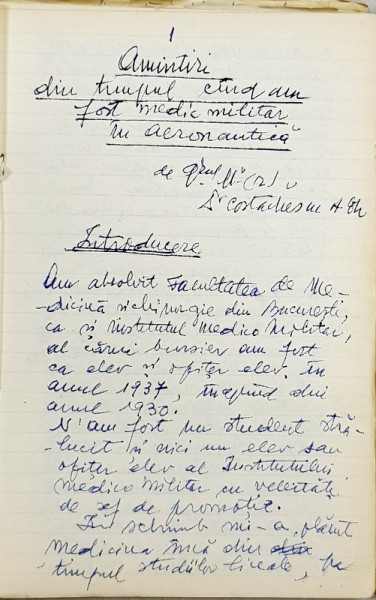 1
Amintiri
din timpul când am
fost medic militar
în aeronautică
de
Dr Costachescu
Introducere
Am absolvit Facultatea de Me-
dicină și chirurgie din București,
ca și institutul medico militar,
al cărui bursier am fost
ca elev și ofițer elev, în
anul 1937, începînd din
anul 1930.
N'am fost un student stră-
-lucit și nici un elev sau
ofițer elev al Institutului
medico militar cu veleități
de șef de promoție.
În schimb mi-a plăcut
medicina încă din
timpul studiilor liceale, pe